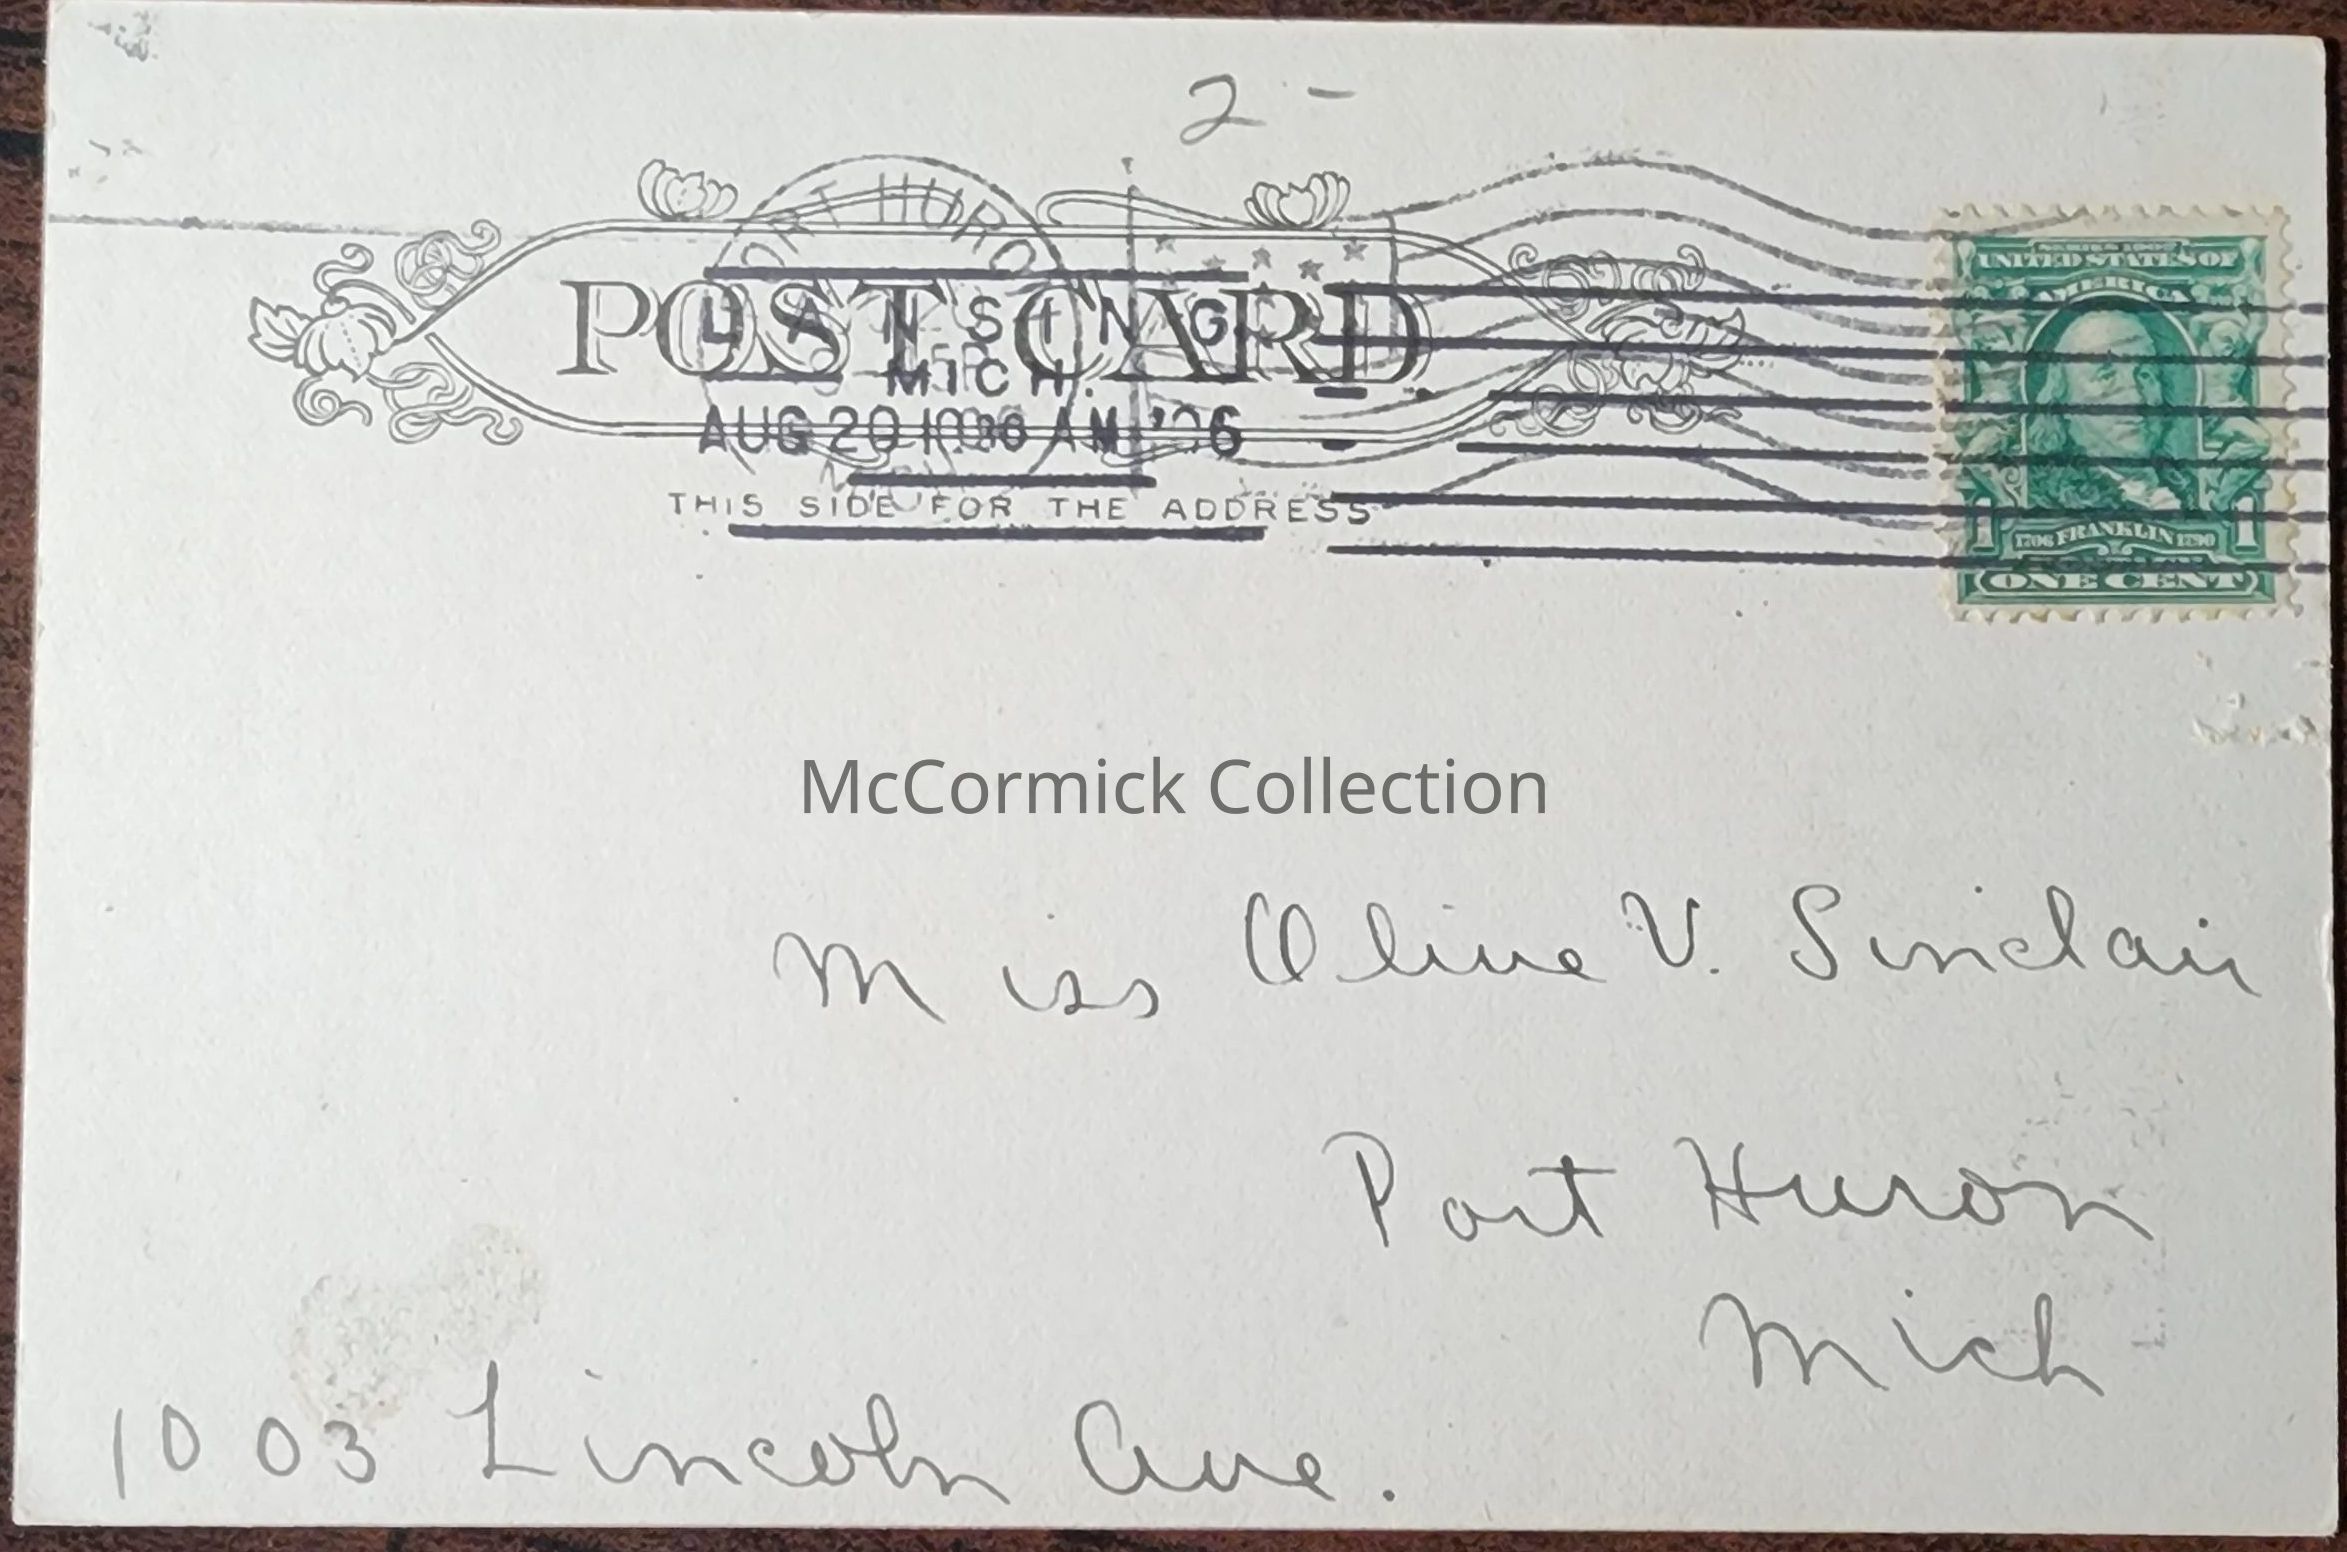 2 -
PORT HURO
POST CARD
LANSING
MICH.
AUG 20 10
AM '06
THIS SIDE FOR THE ADDRESS
SERIES 1902
UNITED STATES OF
AMERICA
1 1706 FRANKLIN 1790 1
ONE CENT
McCormick Collection
Miss Olive V. Sinclair
Port Huron
Mich
1003 Lincoln Ave.